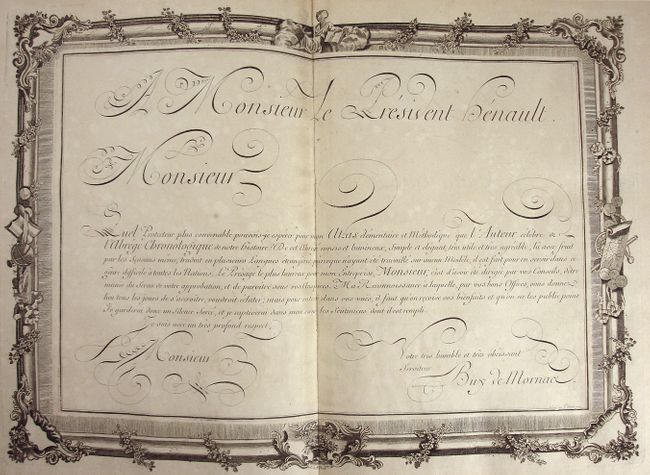 A Monsieur le Président hénault.
Monsieur
Quel Protecteur plus convenable pouvois-je esperer pour mon Atlas élémentaire et Méthodique que l'Auteur célebre de
l'Abregé Chronologique de notre histoire? De cet Abregé concis et lumineux, Simple et élégant, très utile et très agréable, lû avec fruit
par les Sçavans même, traduit en plusieurs Langues étrangères, quoique n'ayant été travaillé sur aucun Modèle, il est fait pour en servir dans ce
genre difficile à toutes les Nations. Le Présage le plus heureux pour mon Entreprise, Monsieur, c'est d'avoir été dirigé par vos Conseils, d'être
munie du Sceau de votre approbation, et de paroître sous vos Auspices. Ma Reconnoissance à laquelle, par vos bons Offices, vous donnez
lieu tous les jours de s'accroitre, voudroit éclater; mais pour entrer dans vos vues, il faut qu'on reçoive vos bienfaits et qu'on ne les publie point.
Je garderai donc un Silence forcé, et je captiverai dans mon cœur les Sentimens dont il est rempli.
Je suis avec un très profond respect,
Monsieur
Votre très humble et très obéissant
Serviteur
Buy de Mornas.